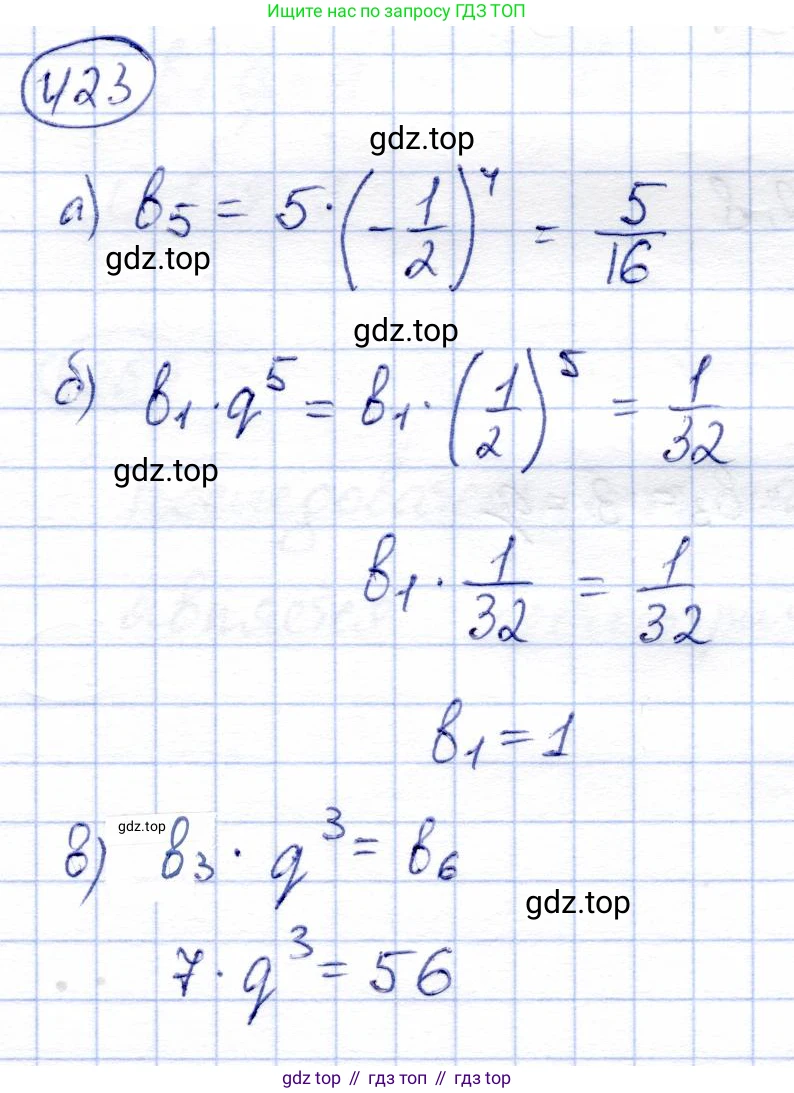 Ищите нас по запросу ГДЗ ТОП
423
gdz.top
а) b₅ = 5·(-1/2)⁴ = 5/16
gdz.top
gdz.top
б) b₁·q⁵ = b₁·(1/2)⁵ = 1/32
gdz.top
b₁·1/32 = 1/32
b₁ = 1
gdz.top
в) b₃·q³ = b₆
gdz.top
7·q³ = 56
gdz top // гдз топ // гдз top